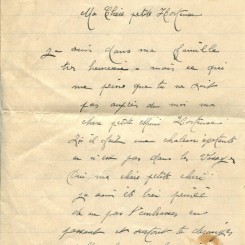 Ma Chère petite Hortense
Je suis dans ma famille
très heureuse mais ce qui
me peine que tu ne sois
pas auprès de moi ma
chère petite Mimi Hortense
Ici il fait une chaleur
on n'est pas dans les Vosges
Oui ma chère petite chérie
je suis très peinée
de ne pas t'embrasser en
passant et surtout te